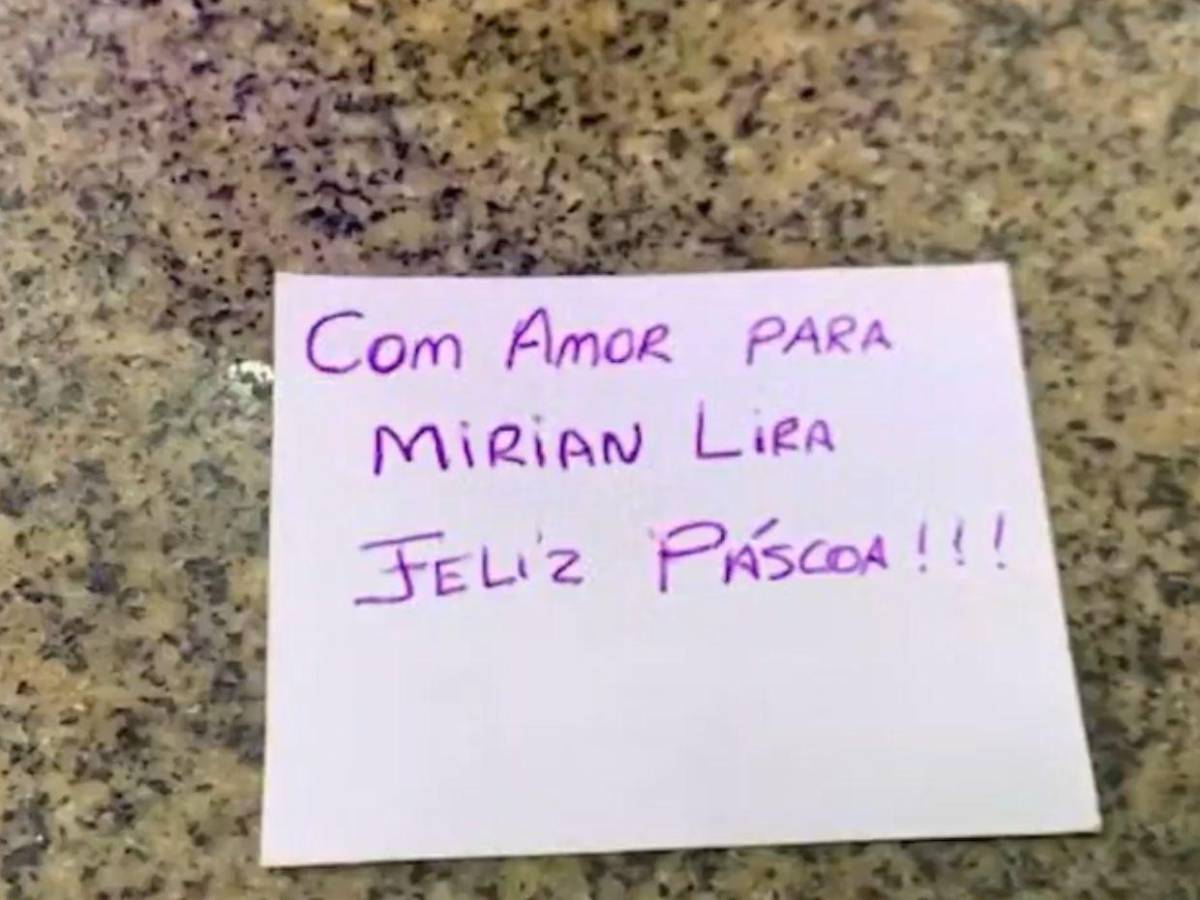 Com Amor PARA
MiRiAN LiRA
FELiz PÁSCOA!!!